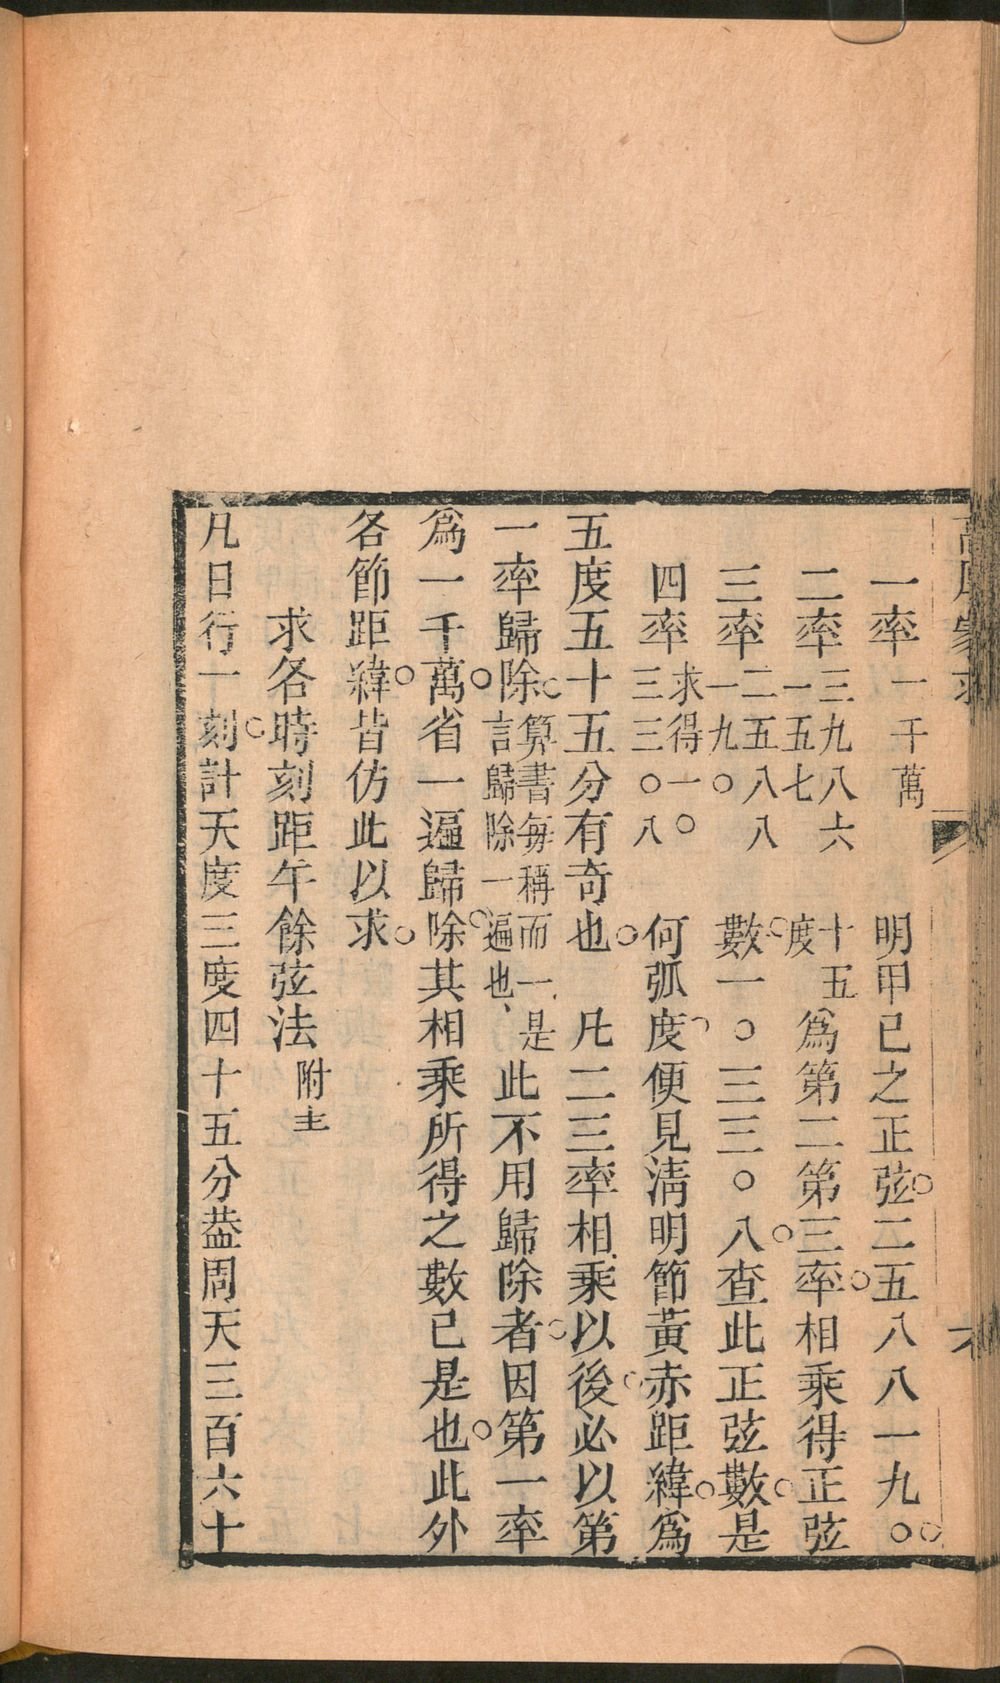 高厚蒙求
一率一千萬 明甲己之正弦二五八八一九〇
二率三九八六一五七 十五度爲第二第三率相乘得正弦
三率二五八八一九〇 數一〇三三〇八查此正弦數是
四率求得一〇三三〇八 何弧度便見淸明節黃赤距緯爲
五度五十五分有奇也 凡二三率相乘以後必以第
一率歸除算書每稱而一是言歸除一遍也此不用歸除者因第一率
爲一千萬省一遍歸除其相乘所得之數已是也此外
各節距緯皆仿此以求
求各時刻距午餘弦法附主
凡日行一刻計天度三度四十五分葢周天三百六十